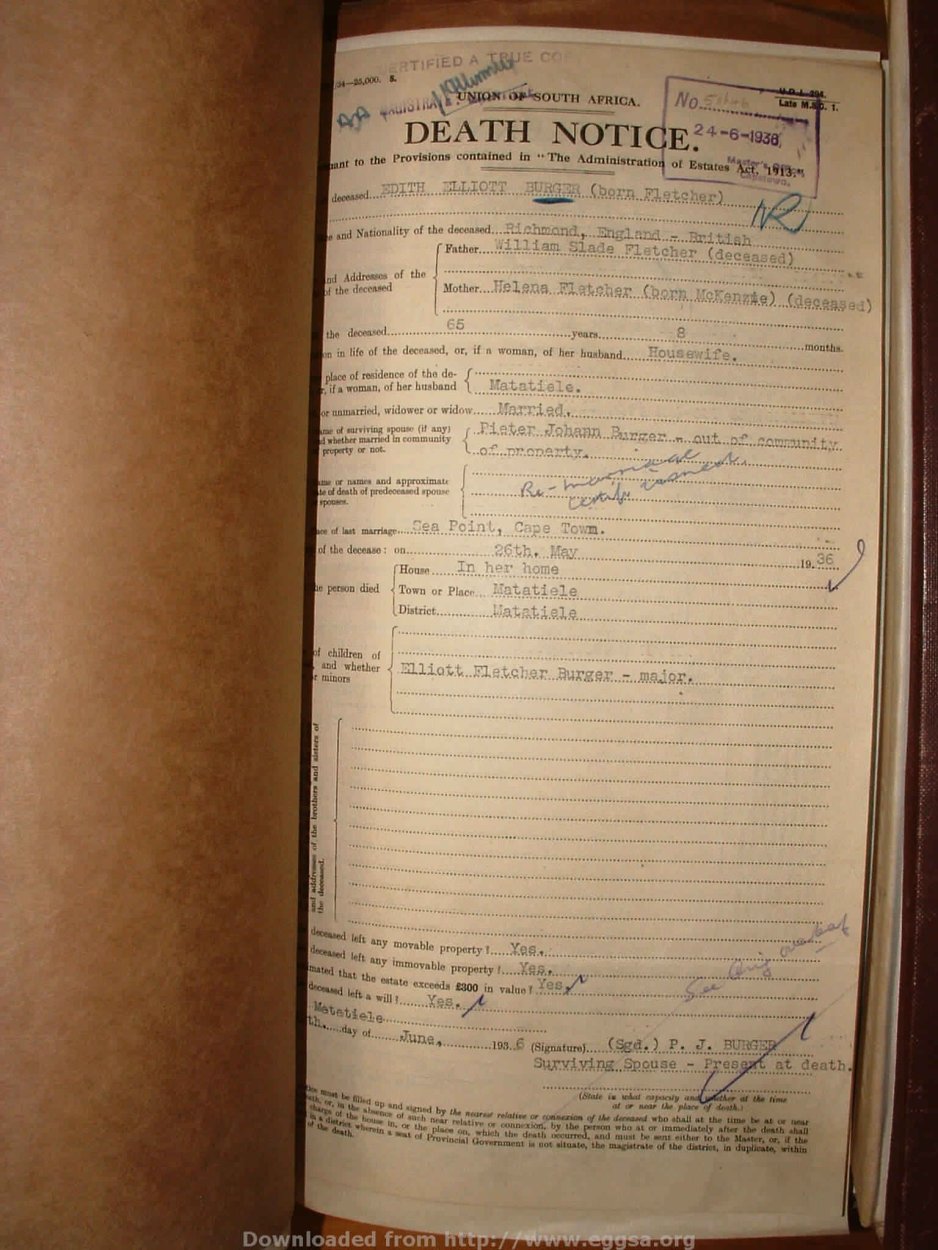 CERTIFIED A TRUE CO
34—25,000. S.
UNION OF SOUTH AFRICA.
No.
U.D.J. 294.
Late M.S.C. 1.
DEATH NOTICE.
24-6-1936
Master's
Capetown.
uant to the Provisions contained in "The Administration of Estates Act, 1913."
deceased EDITH ELLIOTT BURGER (born Fletcher)
NR
ce and Nationality of the deceased Richmond, England - British
Father William Slade Fletcher (deceased)
nd Addresses of the
of the deceased
Mother Helena Fletcher (born McKenzie) (deceased)
the deceased 65 years 8 months.
on in life of the deceased, or, if a woman, of her husband Housewife.
place of residence of the de-
r, if a woman, of her husband Matatiele.
or unmarried, widower or widow Married.
ame of surviving spouse (if any)
d whether married in community
property or not.
Pieter Johann Burger - out of community
of property.
ame or names and approximate
te of death of predeceased spouse
spouses.
Re-marriage
ace of last marriage Sea Point, Cape Town.
of the decease: on 26th. May 19 36
House In her home
he person died Town or Place Matatiele
District Matatiele
of children of
, and whether
r minors
Elliott Fletcher Burger - major.
and addresses of the brothers and sisters of
the deceased.
deceased left any movable property? Yes.
deceased left any immovable property? Yes.
mated that the estate exceeds £300 in value? Yes.
deceased left a will? Yes.
See Orig overleaf
Matatiele
th. day of June, 193 6 (Signature) (Sgd.) P. J. BURGER
Surviving Spouse - Present at death.
(State in what capacity and whether at the time
at or near the place of death.)
tice must be filled up and signed by the nearest relative or connexion of the deceased who shall at the time be at or near
eath, or, in the absence of such near relative or connexion, by the person who at or immediately after the death shall
charge of the house in, or the place on, which the death occurred, and must be sent either to the Master, or, if the
in a district wherein a seat of Provincial Government is not situate, the magistrate of the district, in duplicate, within
of the death.
Downloaded from http://www.eggsa.org